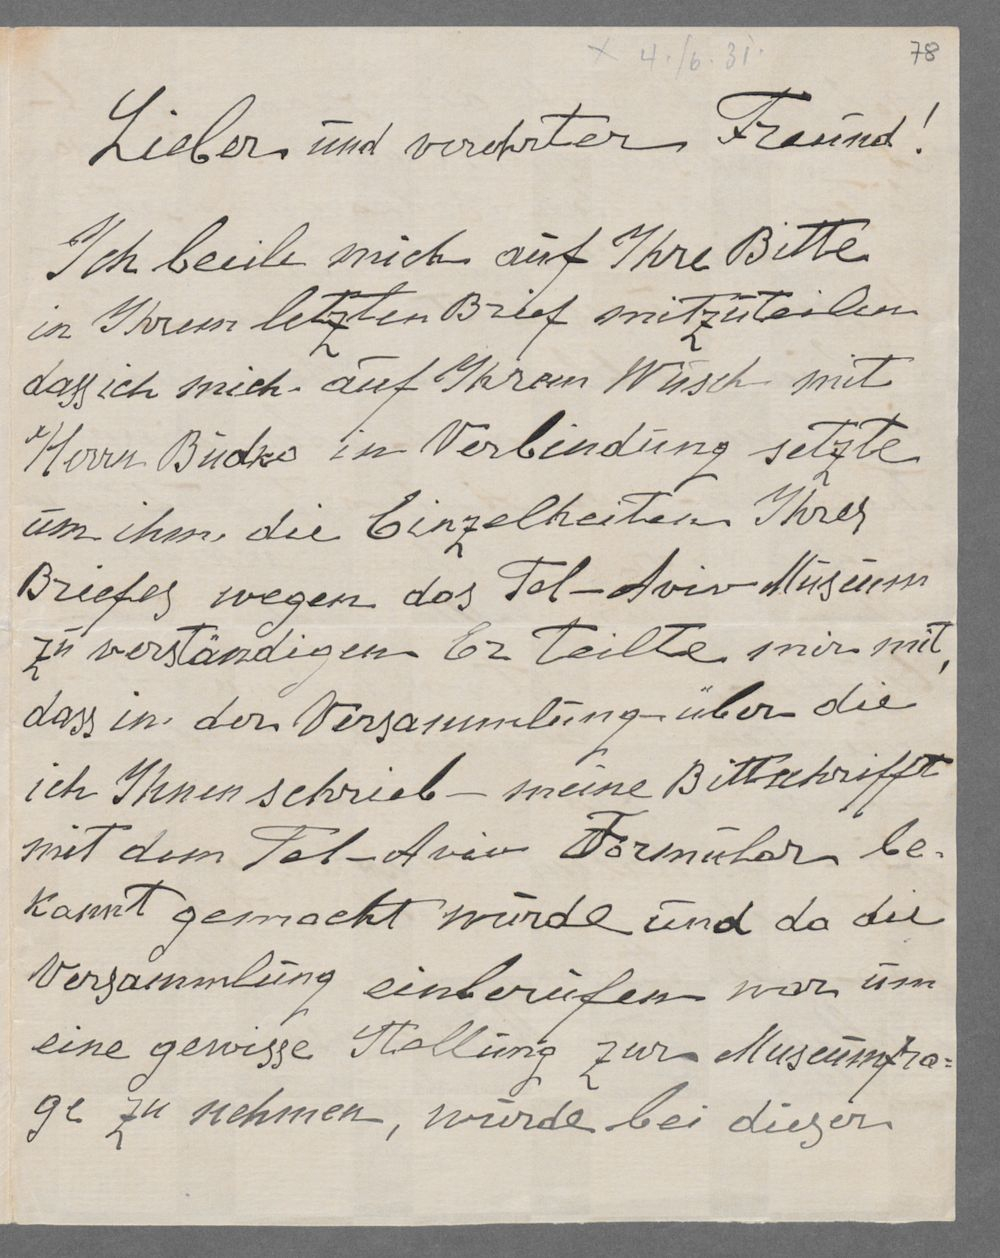 x 4./6. 31.
78
Lieber und verehrter Freund!
Ich beeile mich auf Ihre Bitte
in Ihrem letzten Brief mitzuteilen
dass ich mich auf Ihren Wusch mit
Herrn Budko in Verbindung setzte
um ihm die Einzelheiten Ihres
Briefes wegen das Tel-Aviv Museum
zu verständigen Er teilte mir mit,
dass in der Versammlung über die
ich Ihnen schrieb - meine Bittschrifft
mit dem Tel-Aviv Formular be-
kannt gemacht wurde und da die
Versammlung einberufen war um
eine gewisse Stellung zur Museumfra=
ge zu nehmen, wurde bei dieser